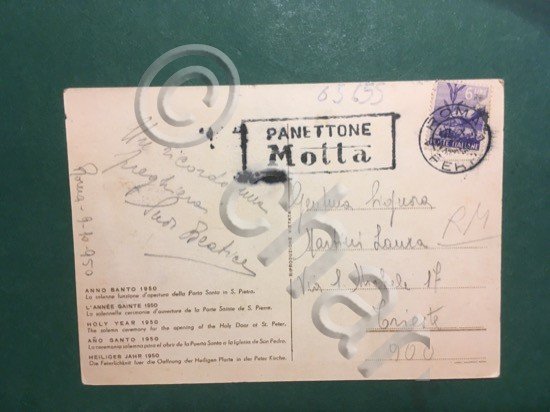 65655
6 LIRE
ROMA
FERR
POSTE ITALIANE
PANETTONE
Motta
Vi ricordo nella
preghiera
Suor Beatrice
Roma - 9-10-950
Gent.ma Signora
Martini Laura
Via S. Michele 17
Trieste
900
RM
ANNO SANTO 1950
La solenne funzione d'apertura della Porta Santa in S. Pietro.
L'ANNÉE SAINTE 1950
La solennelle cérémonie d'ouverture de la Porte Sainte de S. Pierre.
HOLY YEAR 1950
The solemn ceremony for the opening of the Holy Door at St. Peter.
AÑO SANTO 1950
La ceremonia solemne para el obra de la Puerta Santa a la iglesia de San Pedro.
HEILIGER JAHR 1950
Die Feierlichkeit fuer die Oeffnung der Heiligen Pforte in der Peter Kirche.
RIPRODUZIONE VIETATA
© chak